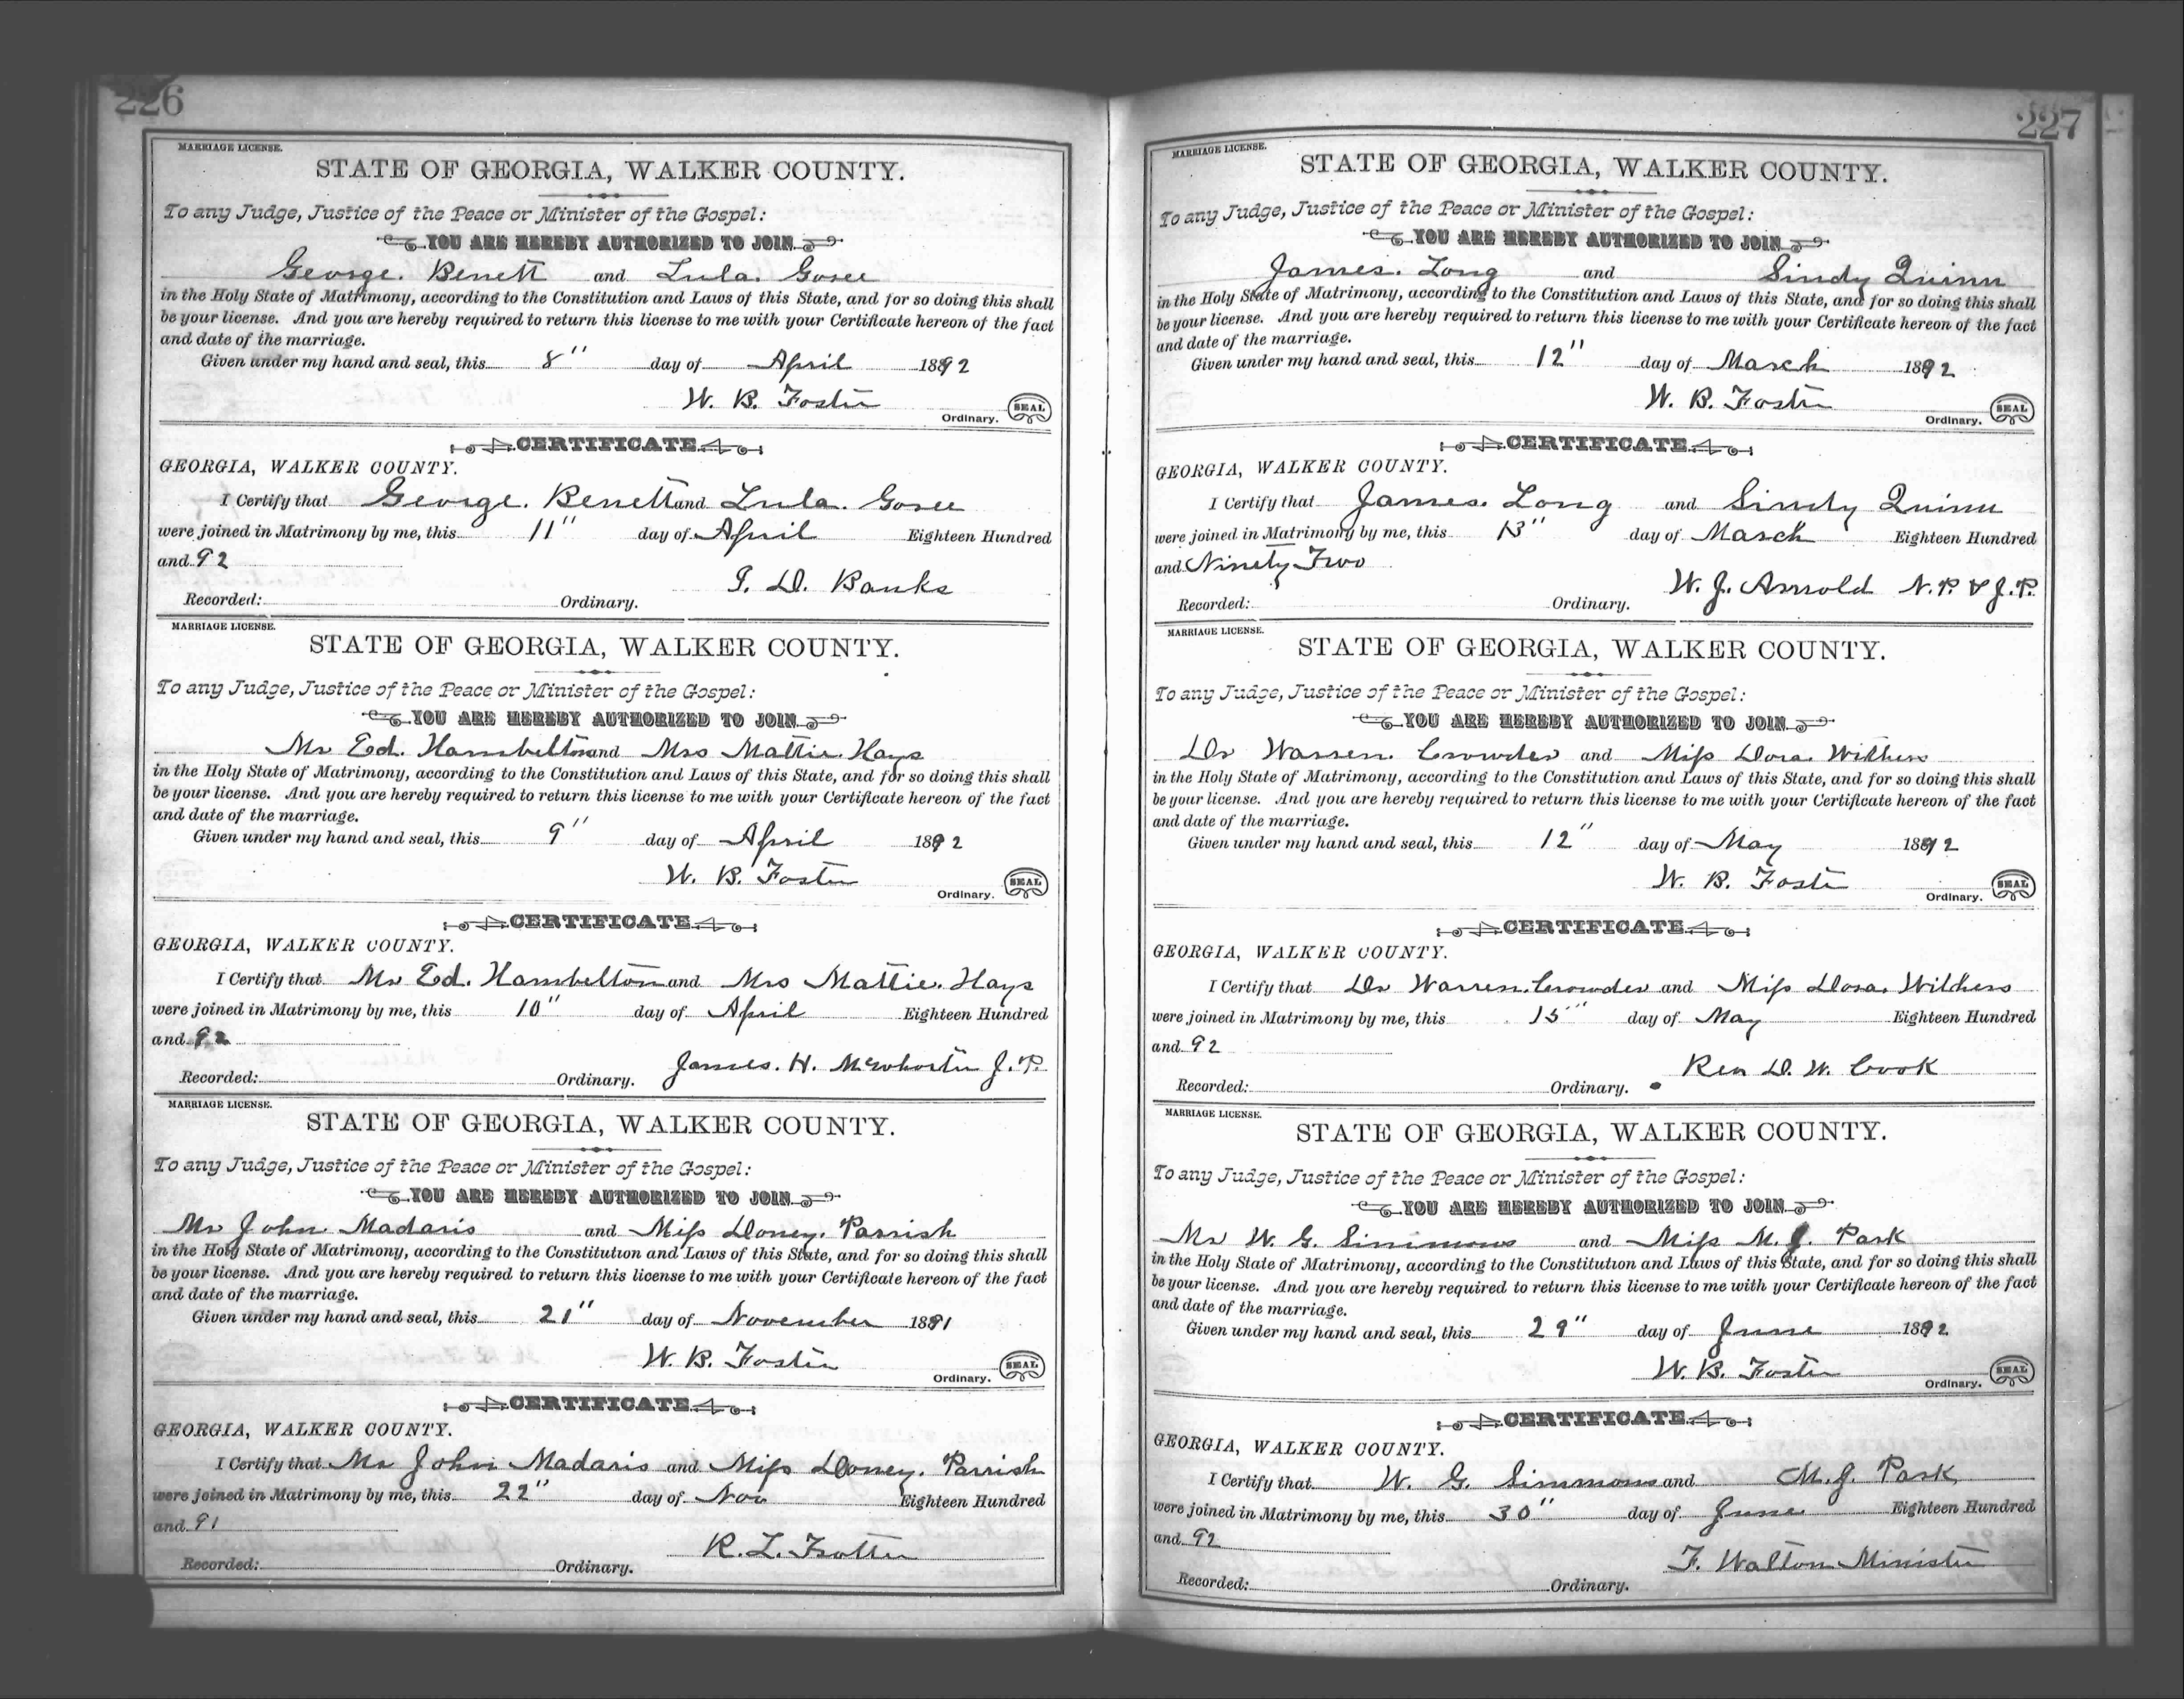 226
MARRIAGE LICENSE.
STATE OF GEORGIA, WALKER COUNTY.
To any Judge, Justice of the Peace or Minister of the Gospel:
YOU ARE HEREBY AUTHORIZED TO JOIN
George. Benett and Lula. Goree
in the Holy State of Matrimony, according to the Constitution and Laws of this State, and for so doing this shall
be your license. And you are hereby required to return this license to me with your Certificate hereon of the fact
and date of the marriage.
Given under my hand and seal, this 8" day of April 1892
W. B. Foster
Ordinary. SEAL
CERTIFICATE
GEORGIA, WALKER COUNTY.
I Certify that George. Benett and Lula. Goree
were joined in Matrimony by me, this 11" day of April Eighteen Hundred
and 92
D. Banks
Recorded: Ordinary.
MARRIAGE LICENSE.
STATE OF GEORGIA, WALKER COUNTY.
To any Judge, Justice of the Peace or Minister of the Gospel:
YOU ARE HEREBY AUTHORIZED TO JOIN
Mr Ed. Hambelton and Mrs Mattie. Hays
in the Holy State of Matrimony, according to the Constitution and Laws of this State, and for so doing this shall
be your license. And you are hereby required to return this license to me with your Certificate hereon of the fact
and date of the marriage.
Given under my hand and seal, this 9" day of April 1892
W. B. Foster
Ordinary. SEAL
CERTIFICATE
GEORGIA, WALKER COUNTY.
I Certify that Mr Ed. Hambelton and Mrs Mattie. Hays
were joined in Matrimony by me, this 10" day of April Eighteen Hundred
and 92
James. H. McWhorter J. P.
Recorded: Ordinary.
MARRIAGE LICENSE.
STATE OF GEORGIA, WALKER COUNTY.
To any Judge, Justice of the Peace or Minister of the Gospel:
YOU ARE HEREBY AUTHORIZED TO JOIN
Mr John Madaris and Miss Doney. Parrish
in the Holy State of Matrimony, according to the Constitution and Laws of this State, and for so doing this shall
be your license. And you are hereby required to return this license to me with your Certificate hereon of the fact
and date of the marriage.
Given under my hand and seal, this 21" day of November 1891
W. B. Foster
Ordinary. SEAL
CERTIFICATE
GEORGIA, WALKER COUNTY.
I Certify that Mr John Madaris and Miss Doney. Parrish
were joined in Matrimony by me, this 22" day of Nov Eighteen Hundred
and 91
R. L. Trotter
Recorded: Ordinary.
227
MARRIAGE LICENSE.
STATE OF GEORGIA, WALKER COUNTY.
To any Judge, Justice of the Peace or Minister of the Gospel:
YOU ARE HEREBY AUTHORIZED TO JOIN
James. Long and Sindy Quinn
in the Holy State of Matrimony, according to the Constitution and Laws of this State, and for so doing this shall
be your license. And you are hereby required to return this license to me with your Certificate hereon of the fact
and date of the marriage.
Given under my hand and seal, this 12" day of March 1892
W. B. Foster
Ordinary. SEAL
CERTIFICATE
GEORGIA, WALKER COUNTY.
I Certify that James. Long and Sindy Quinn
were joined in Matrimony by me, this 13" day of March Eighteen Hundred
and Ninety Two
W. J. Arnold N. P. & J. P.
Recorded: Ordinary.
MARRIAGE LICENSE.
STATE OF GEORGIA, WALKER COUNTY.
To any Judge, Justice of the Peace or Minister of the Gospel:
YOU ARE HEREBY AUTHORIZED TO JOIN
Dr Warren. Crowder and Miss Dora. Withers
in the Holy State of Matrimony, according to the Constitution and Laws of this State, and for so doing this shall
be your license. And you are hereby required to return this license to me with your Certificate hereon of the fact
and date of the marriage.
Given under my hand and seal, this 12" day of May 1892
W. B. Foster
Ordinary. SEAL
CERTIFICATE
GEORGIA, WALKER COUNTY.
I Certify that Dr Warren. Crowder and Miss Dora. Withers
were joined in Matrimony by me, this 15" day of May Eighteen Hundred
and 92
Rev D. W. Cook
Recorded: Ordinary.
MARRIAGE LICENSE.
STATE OF GEORGIA, WALKER COUNTY.
To any Judge, Justice of the Peace or Minister of the Gospel:
YOU ARE HEREBY AUTHORIZED TO JOIN
Mr W. G. Simmons and Miss M. J. Park
in the Holy State of Matrimony, according to the Constitution and Laws of this State, and for so doing this shall
be your license. And you are hereby required to return this license to me with your Certificate hereon of the fact
and date of the marriage.
Given under my hand and seal, this 29" day of June 1892
W. B. Foster
Ordinary. SEAL
CERTIFICATE
GEORGIA, WALKER COUNTY.
I Certify that W. G. Simmons and M. J. Park
were joined in Matrimony by me, this 30" day of June Eighteen Hundred
and 92
F. Walton Minister
Recorded: Ordinary.